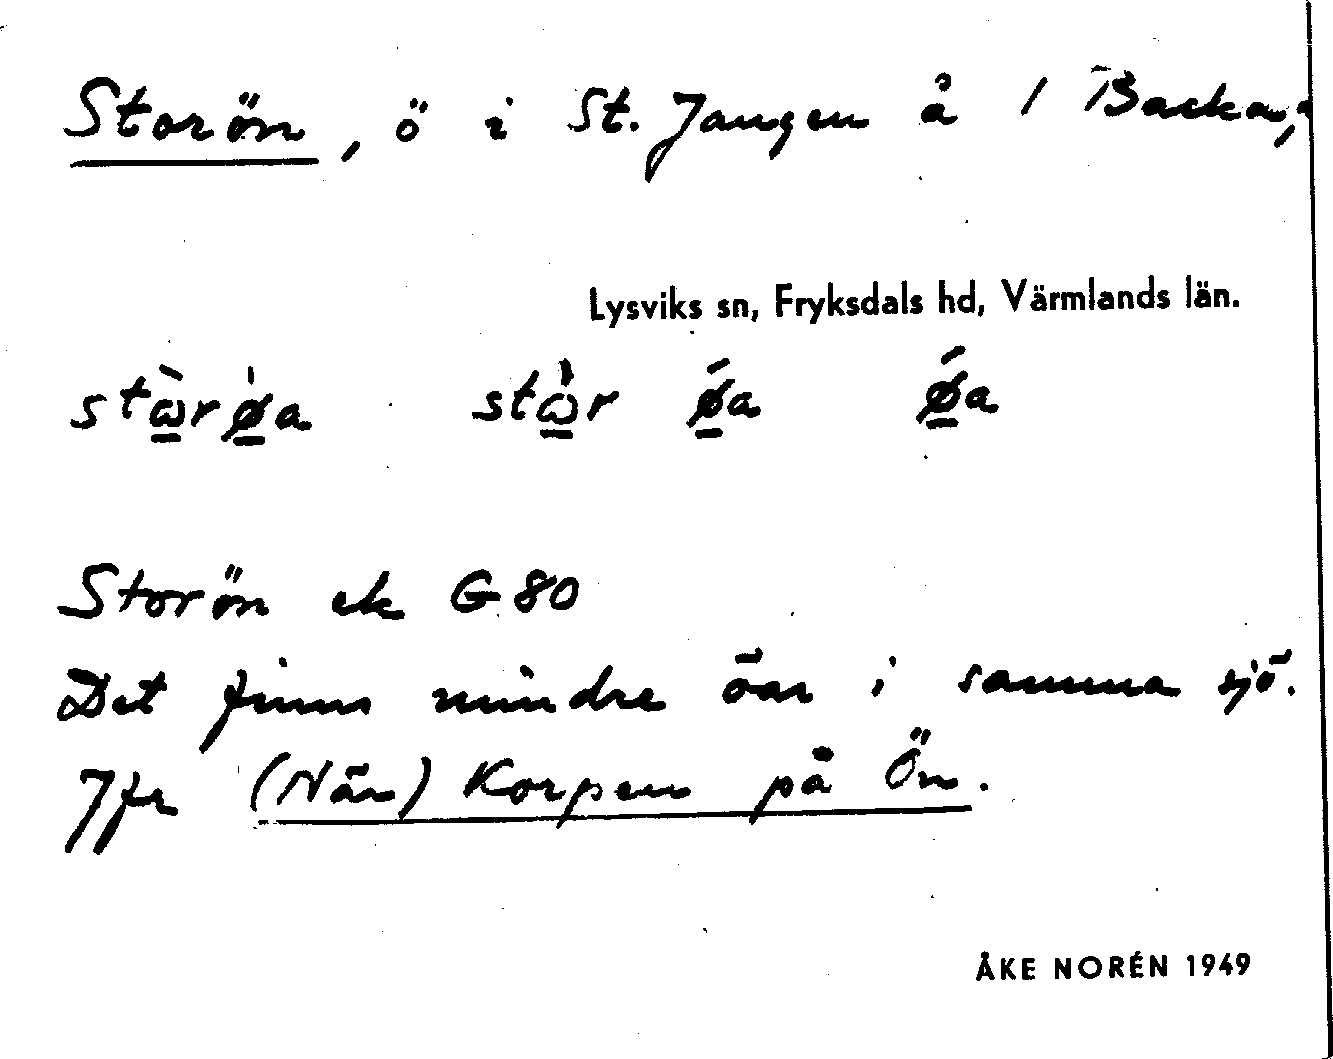 Storön, ö i St. Jangen å 1 Backa,
Lysviks sn, Fryksdals hd, Värmlands län.
Storön ek G 80
Det finns mindre öar i samma sjö.
Jfr (När) Korpen på Ön.
ÅKE NORÉN 1949